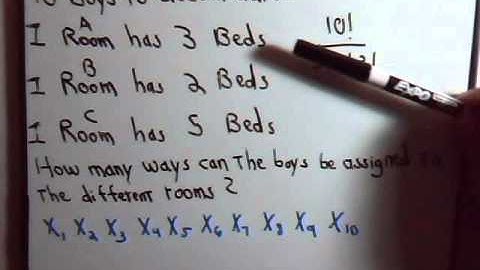 10 Boys
A
1 Room has 3 Beds
10!
B
1 Room has 2 Beds
C
1 Room has 5 Beds
How many ways can The boys be assigned to
The different rooms?
X1 X2 X3 X4 X5 X6 X7 X8 X9 X10
EXPO